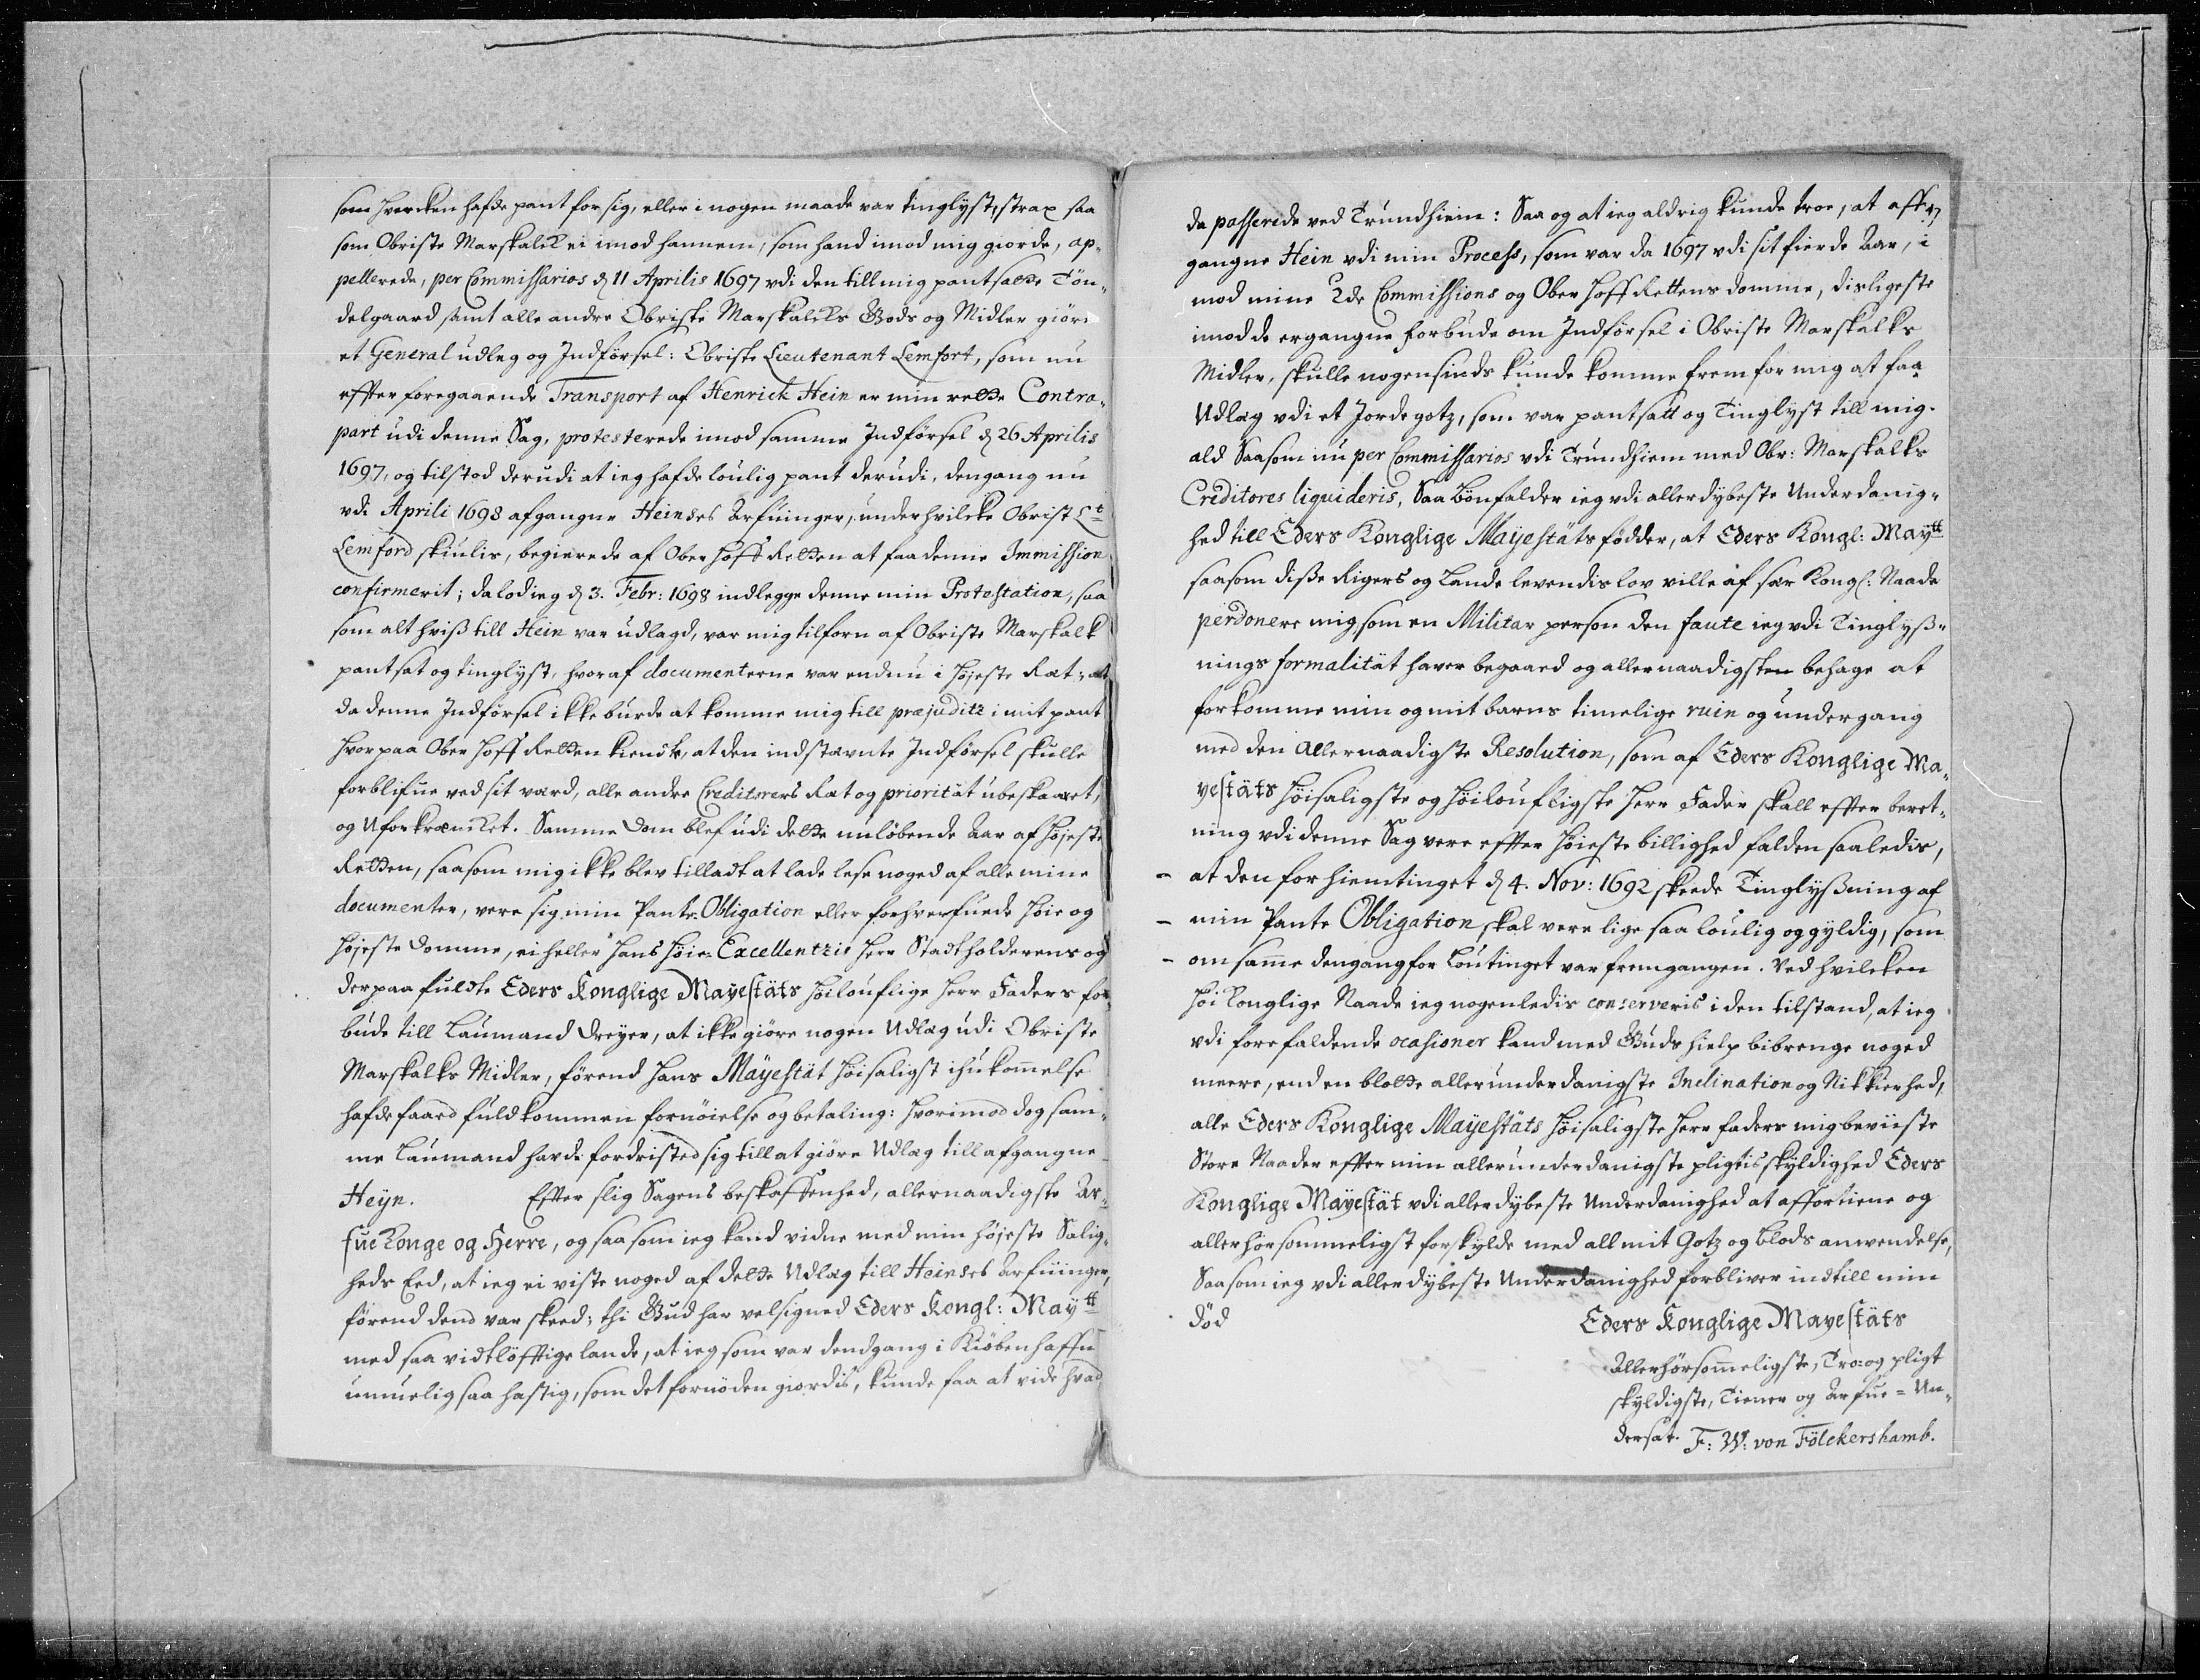 som hvercken hafde pant for sig, eller i nogen maade var tinglyst, strax saa
som Obriste Marskalck ei imod hannem, som hand imod mig giorde, ap„
pellerede, per Commissarios d 11 Aprilis 1697 vdi den till mig pantsatte Tön„
delgaard samt alle andre Obriste Marskalcks Gods og Midler giöre
et General udleg og Indförsel: Obriste Lieutenant Lemfort, som nu
effter foregaaende Transport af Henrich Hein er min rette Contra„
part udi denne Sag, protesterede imod samme Indförsel d 26 Aprilis
1697, og tilstod derudi at ieg hafde loulig pant derudi, dengang nu
vdi Aprili 1698 afgangne Heinses Arfuinger, under hvilcke Obrist Lt
Lemford skiulis, begierede af Ober Hoff Retten at faa denne Immission
confirmerit; da lod ieg d 3. Febr: 1698 indlegge denne min Protestation, saa
som alt hviß till Hein var udlagd, var mig tilforn af Obriste Marskalk
pantsat og tinglyst, hvoraf documenterne var endnu i Højeste Ret; at
da denne Indförsel ikke burde at komme mig till præjuditz i mit pant
Hvorpaa Ober Hoff Retten kiendte, at den indstævnte Indförsel skulle
forblifue ved sit værd, alle andre Creditorers Ret og priorität ubeskaaret,
og Uforkræncket. Samme Dom blef udi dette nuløbende Aar af Højeste
Retten, saasom mig ikke blev tilladt at lade lese noged af alle mine
documenter, vere sig min Pante-Obligation eller forhverfuede Höie og
Højeste Domme, ei heller Hans Höie Excellentzis Herr Stadtholderens og
derpaa fuldte Eders Konglige Mayestäts Höilouflige Herr Faders for„
bude till Laumand Dreyer, at ikke giöre nogen Udlæg udi Obriste
Marskalks Midler, förend Hans Mayestät Höisaligst ihukommelse
hafde faaed fuldkommen fornöielse og betaling: Hvorimod dog sam„
me Laumand havde fordristed sig till at giöre Udlæg till afgangne
Heyn. Effter slig Sagens beskaffenhed, allernaadigste Ar„
fue Konge og Herre, og saasom ieg kand vidne med min Højeste Salig„
heds Eed, at ieg ei viste noged af dette Udlæg till Heinses Arfuinger,
förend dend var skeed; thi Gud har velsigned Eders Kongl: Maytt
med saa vidtlöfftige lande, at ieg som var dendgang i Kiöbenhaffn
umuelig saa hastig, som det fornöden giordis, kunde faa at vide hvad
47
da passerede ved Trundhiem: Saa og at ieg aldrig kunde troe, at aff„
gangne Hein vdi min Process, som var da 1697 vdi sit fierde Aar, i
mod mine 2de Commissions og Ober Hoff Rettens domme, disligeste
imod de ergangne forbude om Indförsel i Obriste Marskalks
Midler, skulle nogensinds kunde komme frem for mig at faa
Udlæg vdi et Jordegotz, som var pantsatt og Tinglyst till mig.
ald Saasom nu per Commissarios vdi Trundhiem med Obr: Marskalks
Creditores liquideris, Saa bönfalder ieg vdi allerdybeste Underdanig„
hed till Eders Konglige Mayestäts födder, at Eders Kongl: Maytt
saasom diße Rigers og Lande levendis lov ville af sær Kongl: Naade
perdonere mig, som en Militar person den faute ieg vdi Tinglyß„
nings formalität haver begaaed og allernaadigsten behage at
forkomme min og mit barns timelige ruin og undergang
med den allernaadigste Resolution, som af Eders Konglige Ma„
yestäts Höisaligste og Höiloufligste Herr Fader skall effter beret„
ning vdi denne Sag vere effter Höieste billighed falden saaledis,
- at den for Hiemtinget d 4. Nov: 1692 skeede Tinglyßning af
- min Pante Obligation skal vere lige saa loulig og gyldig, som
- om same dengang for Loutinget var fremgangen. Ved hvilcken
Höi Konglige Naade ieg nogenledis conserveris i den tilstand, at ieg
vdi forefaldende ocasioner kand med Guds hielp bibrenge noged
meere, end en blotte allerunderdanigste Inclination og Nikkierhed,
alle Eders Konglige Mayestäts Höisaligste Herr Faders mig beviiste
Store Naader effter min allerunderdanigste pligtis skyldighed Eders
Konglige Mayestät vdi allerdybeste Underdanighed at affortiene og
allerhörsommeligst forskylde med all mit Gotz og Blods anwendelse,
Saasom ieg vdi allerdybeste Underdanighed forbliver indtill min
död Eders Konglige Mayestäts
Allerhörsomeligste, Tro= og pligt
skyldigste, Tiener og Arfue=Un„
dersat. F: W: von Fölckershamb.